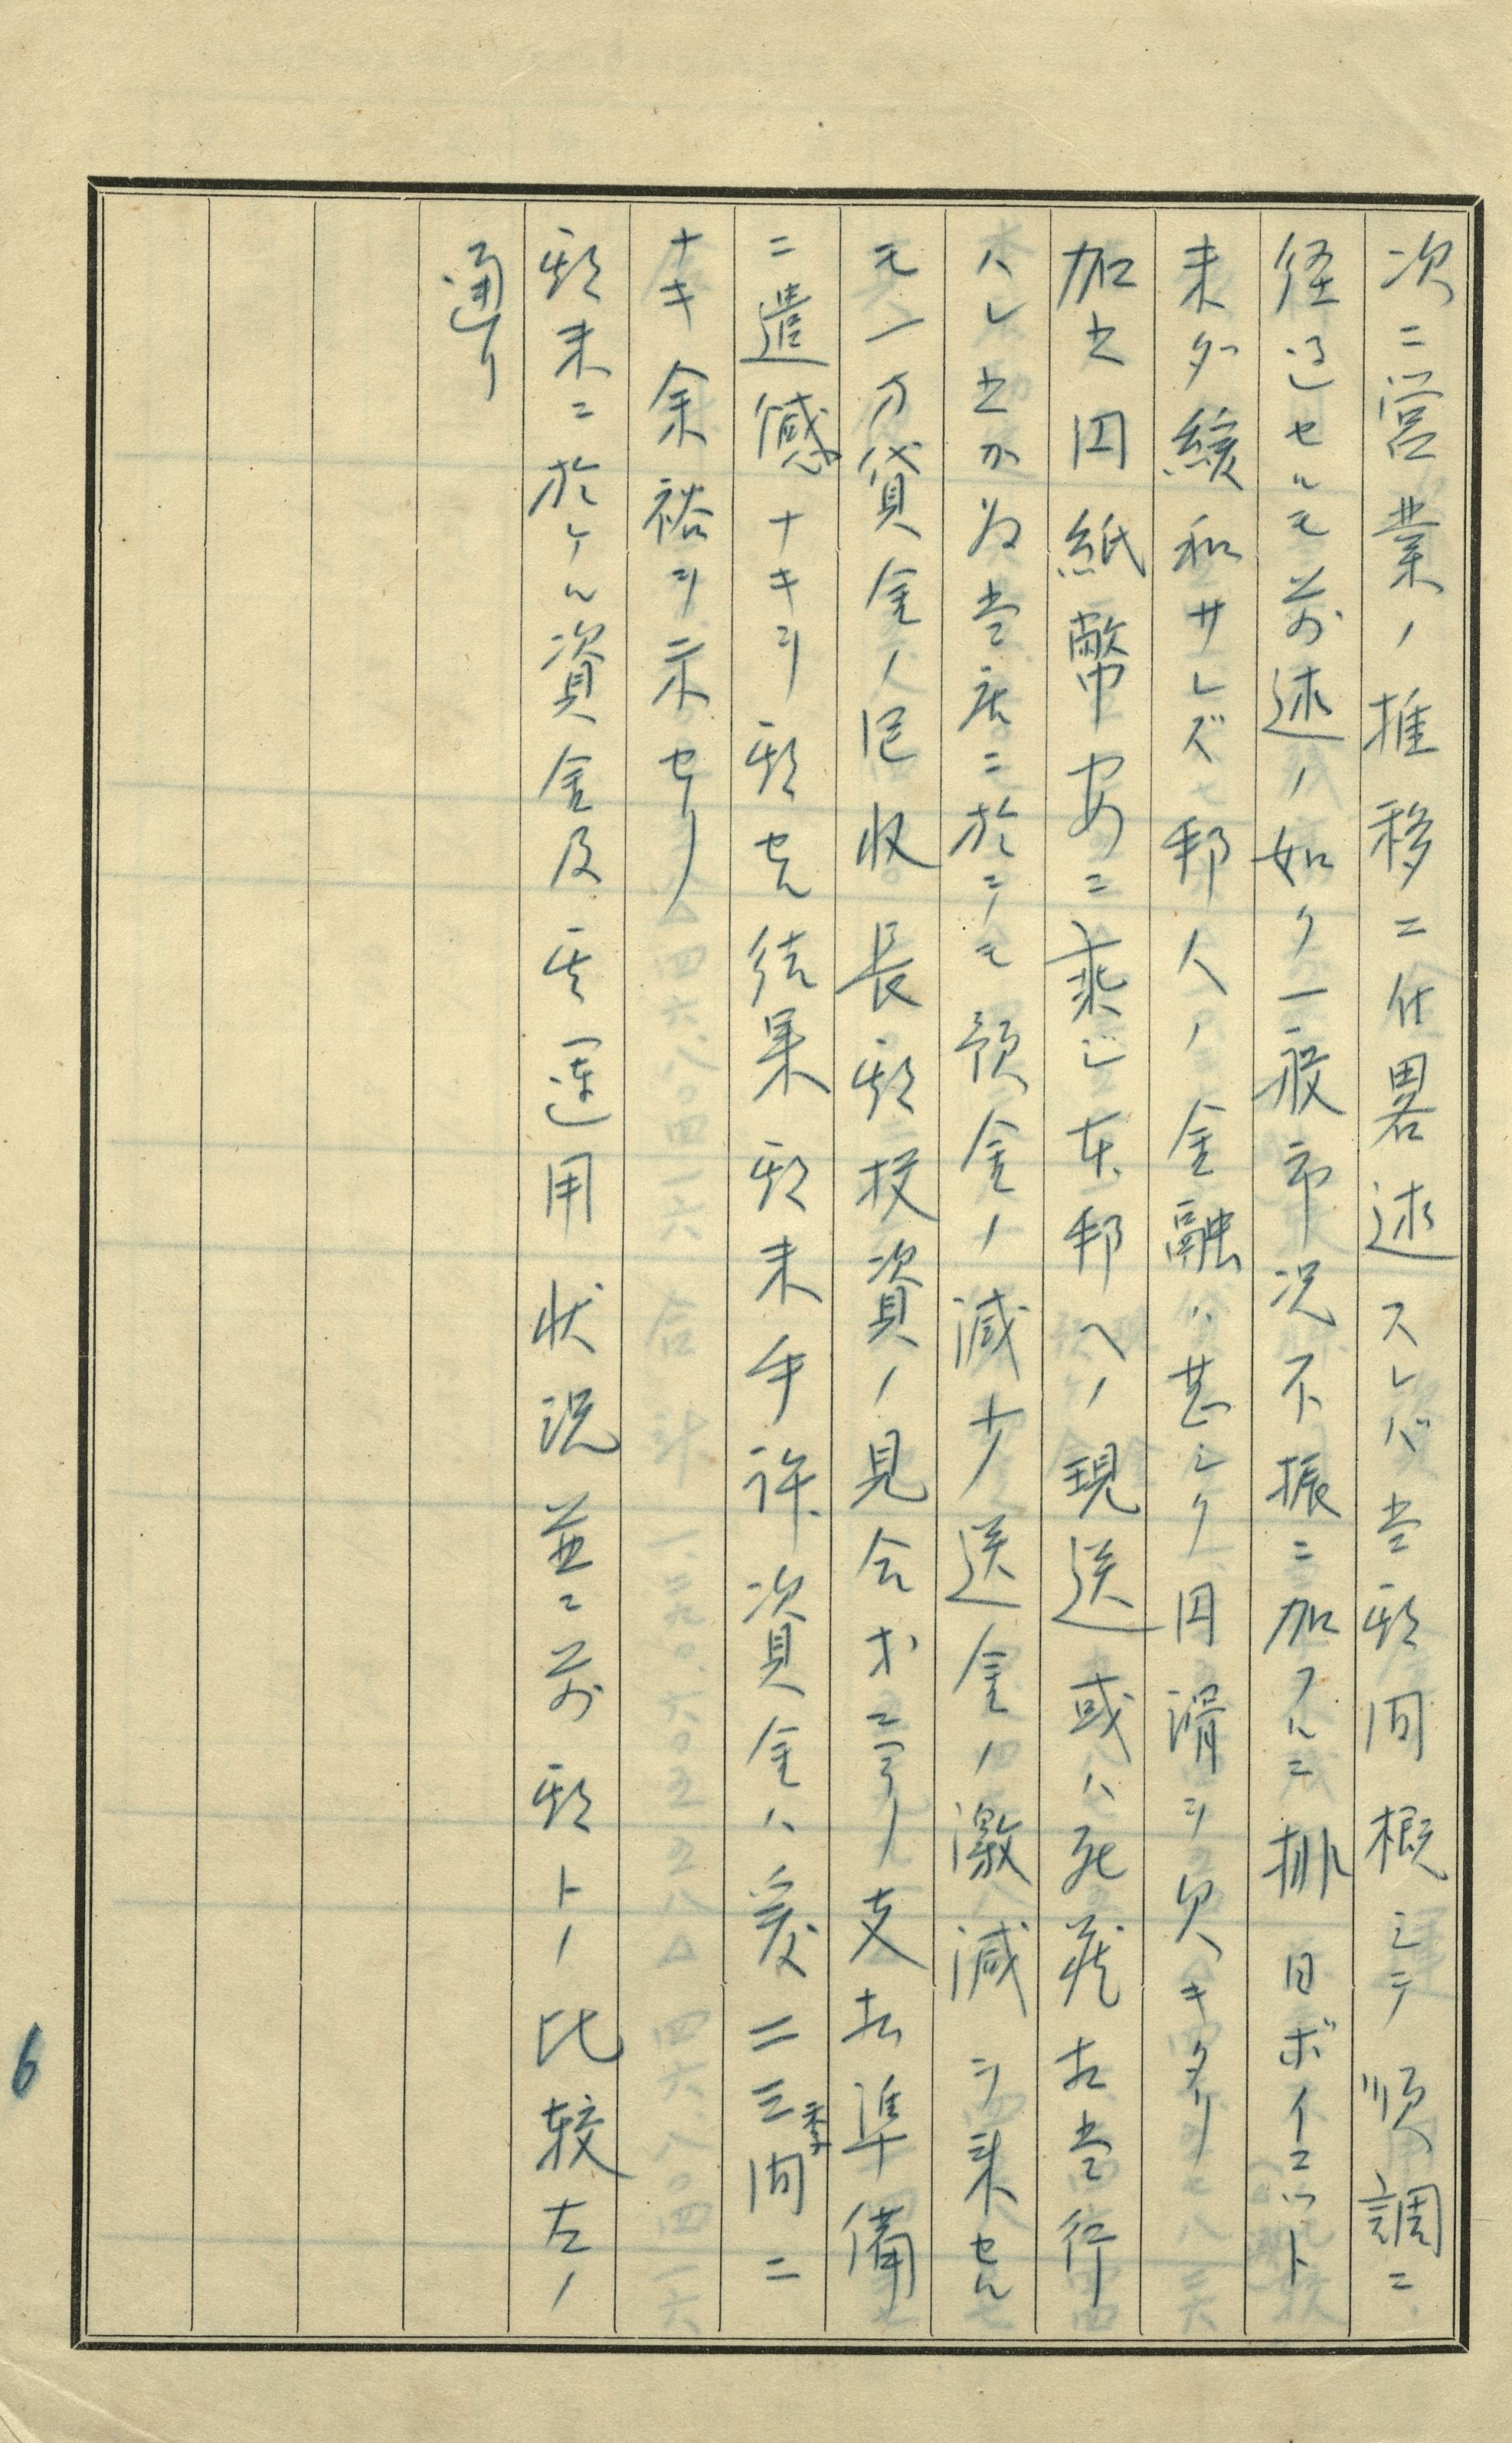 次ニ営業ノ推移ニ付畧述スレバ当期間概シテ順調ニ
経過セルモ前述ノ如ク一般市况不振ニ加フルニ排日ボイコット
未ダ緩和サレズ邦人ノ金融ハ甚シク円滑ヲ欠キタリ
加之円紙幣安ニ乘ジ本邦ヘノ現送或ハ死蔵、当行
ハレ之カ為当店ニ於テモ預金ノ減少送金ノ激減ヲ来セル
モ一方貸金ノ回収長期投資ノ見合オニ寄リ支払準備
ニ遺憾ナキヲ期セル結果期末手許資金ハ爰二三季間ニ
ナキ余裕ヲ示セリ
期末ニ於ケル資金及其運用状況並ニ前期トノ比較左ノ
通リ
6